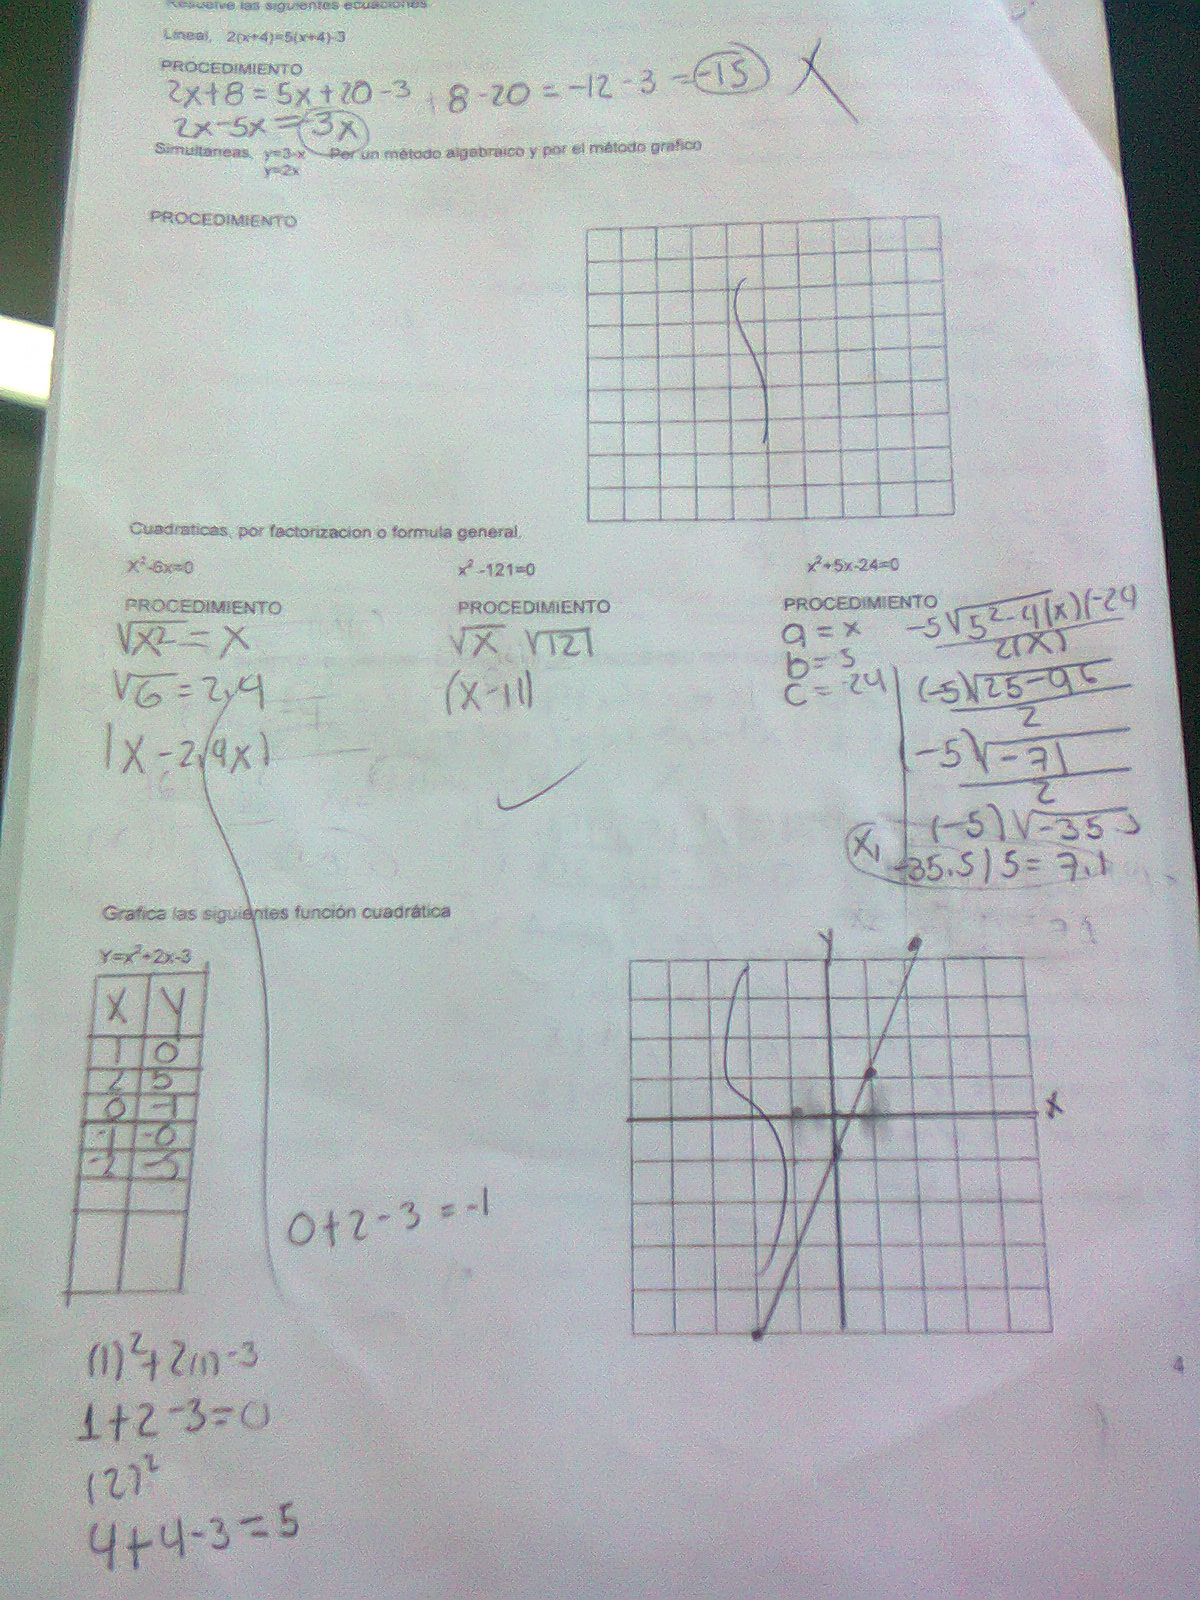 Resuelve las siguientes ecuaciones
Lineal, 2(x+4)=5(x+4)-3
PROCEDIMIENTO
2x+8 = 5x+20-3 + 8-20 = -12-3 = -15 X
2x-5x = 3x
Simultaneas, y=3-x Per un método algebraico y por el método grafico
y=2x
PROCEDIMIENTO
Cuadraticas, por factorizacion o formula general.
X²-6x=0
PROCEDIMIENTO
√x² = X
√6 = 2,4
(X-2,4x)
x²-121=0
PROCEDIMIENTO
√x √121
(X-11)
x²+5x-24=0
PROCEDIMIENTO
a = x
b = 5
c = -24
-5√5²-4(x)(-24
2(x)
(-5)√25-96
2
-5√-71
2
(-5)√-35.5
X₁ -35.5|5 = 7.1
Grafica las siguientes función cuadrática
Y=x²+2x-3
X Y
1 0
2 5
0 -1
-1 -0
-2 -5
0+2-3 = -1
Y
X
(1)²+2(1)-3
1+2-3=0
(2)²
4+4-3=5
4